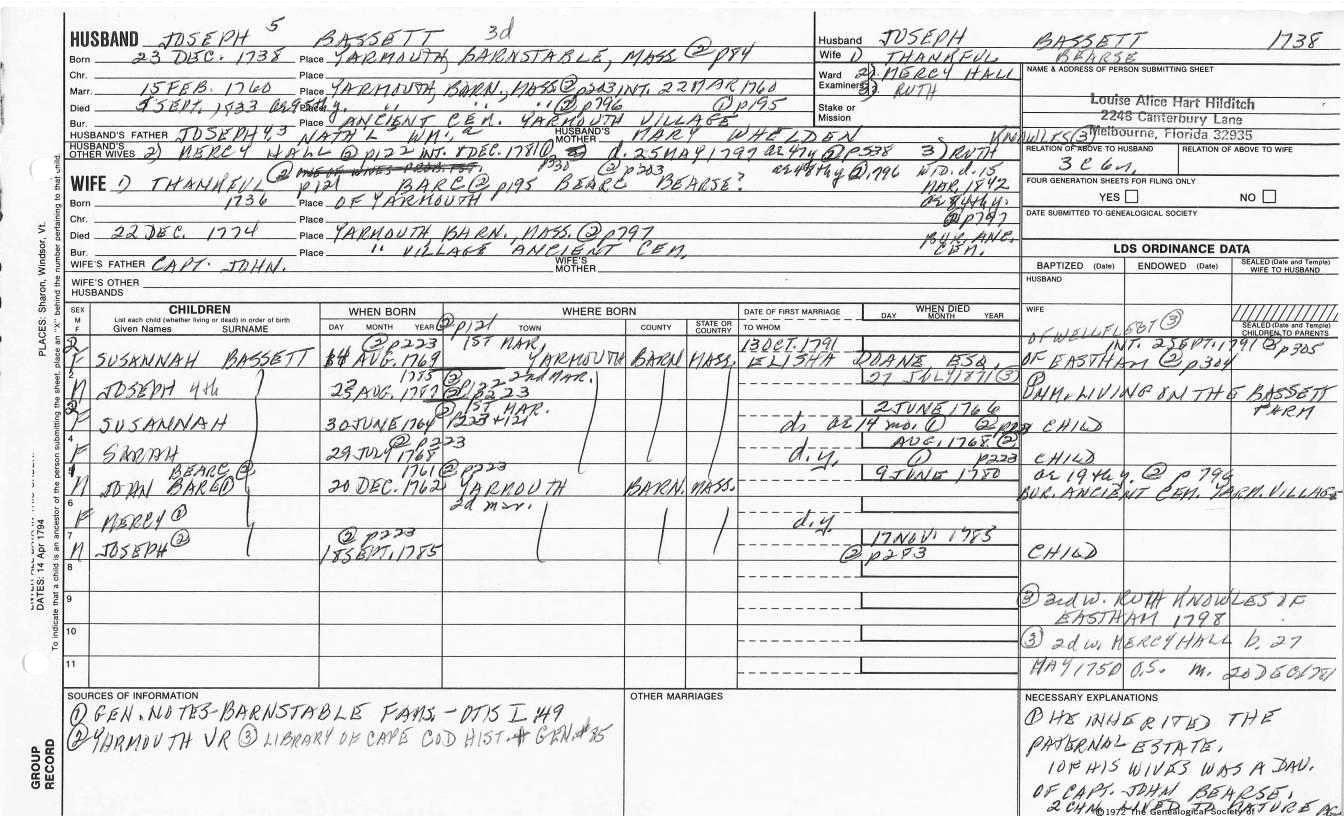 HUSBAND JOSEPH 5 BASSETT 3d
Born 23 DEC. 1738 Place YARMOUTH, BARNSTABLE, MASS ② p84
Chr. Place
Marr. 15 FEB. 1760 Place YARMOUTH, BARN., MASS ② p203 INT. 22 MAR 1760
Died SEPT. 1833 ae 95thy. " " " ② p796 ① p195
Bur. Place ANCIENT CEM. YARMOUTH VILLAGE
HUSBAND'S FATHER JOSEPH 4,3 NATH'L WM. HUSBAND'S MOTHER MARY WHELDEN
HUSBAND'S OTHER WIVES 2) MERCY HALL ② p122 INT. 8 DEC. 1781 ① d. 25 MAY 1797 ae 47y ② p538 3) RUTH KNOWLES ③
p30 ② p203 ae 48thy ②, 796 WID. d. 15
WIFE 1) THANKFUL ② p121 BARC ② p195 BEARC BEARSE? MAR. 1842
Born 1736 Place OF YARMOUTH ae 84thy.
Chr. Place ② p797
Died 22 DEC. 1774 Place YARMOUTH BARN. MASS. ② p797 BUR. ANC.
Bur. Place " VILLAGE ANCIENT CEM. CEM.
WIFE'S FATHER CAPT. JOHN. WIFE'S MOTHER
WIFE'S OTHER HUSBANDS
Husband JOSEPH BASSETT 1738
Wife 1) THANKFUL BEARSE
Ward 2) MERCY HALL
Examiners 3) RUTH
Stake or Mission
NAME & ADDRESS OF PERSON SUBMITTING SHEET
Louise Alice Hart Hilditch
2248 Canterbury Lane
Melbourne, Florida 32935
RELATION OF ABOVE TO HUSBAND RELATION OF ABOVE TO WIFE
FOUR GENERATION SHEETS FOR FILING ONLY
YES NO
DATE SUBMITTED TO GENEALOGICAL SOCIETY
LDS ORDINANCE DATA
BAPTIZED (Date) ENDOWED (Date) SEALED (Date and Temple) WIFE TO HUSBAND
HUSBAND
WIFE
SEALED (Date and Temple) CHILDREN TO PARENTS
SEX M F
CHILDREN
List each child (whether living or dead) in order of birth
Given Names SURNAME
WHEN BORN
DAY MONTH YEAR
WHERE BORN
TOWN COUNTY STATE OR COUNTRY
DATE OF FIRST MARRIAGE
TO WHOM
WHEN DIED
DAY MONTH YEAR
② p223 ② p121 1ST MAR. 13 OCT. 1791 OF WELLFLEET ③ INT. 2 SEPT. 1791 ② p305
F SUSANNAH BASSETT AUG. 1769 YARMOUTH BARN MASS. ELISHA DOANE ESQ. OF EASTHAM ② p304
1783 ② p122 2nd MAR. 27 JULY 1871 ③
M JOSEPH 4th 25 AUG. 1787 ② p223 UNM. LIVING ON THE BASSETT FARM
② 1ST MAR. 2 JUNE 1766
F SUSANNAH 30 JUNE 1764 p223 + 121 d. ae 14 mo. ① CHILD
4 ② p223 AUG. 1768 ②
F SARAH 29 JULY 1768 d.y. ① p223 CHILD
BEARC ② 1761 ② p223 9 JUNE 1780 ae 19thy. ② p 796
M JOHN BARE ① 20 DEC. 1762 YARMOUTH BARN. MASS. BUR. ANCIENT CEM. YARM. VILLAGE
6 2d mar.
F MERCY ① d.y.
7 ② p223 17 NOV. 1785
M JOSEPH ② 18 SEPT. 1785 ② p283 CHILD
8
9
10
11
③ 3rd w. RUTH KNOWLES OF
EASTHAM 1798
③ 2d w. MERCY HALL b. 27
MAY 1750 O.S. m. 20 DEC 1781
SOURCES OF INFORMATION
① GEN. NOTES-BARNSTABLE FAMS. - OTIS I 49
② YARMOUTH VR ③ LIBRARY OF CAPE COD HIST. & GEN. #85
OTHER MARRIAGES
NECESSARY EXPLANATIONS
① HE INHERITED THE
PATERNAL ESTATE.
1 OF HIS WIVES WAS A DAU.
OF CAPT. JOHN BEARSE.
2 CHN. LIVED TO MATURE
©1972 The Genealogical Society of
PLACES: Sharon, Windsor, Vt.
DATES: 14 Apr 1794
To indicate that a child is an ancestor of the person submitting the sheet, place an "X" behind the number pertaining to that child.
GROUP RECORD